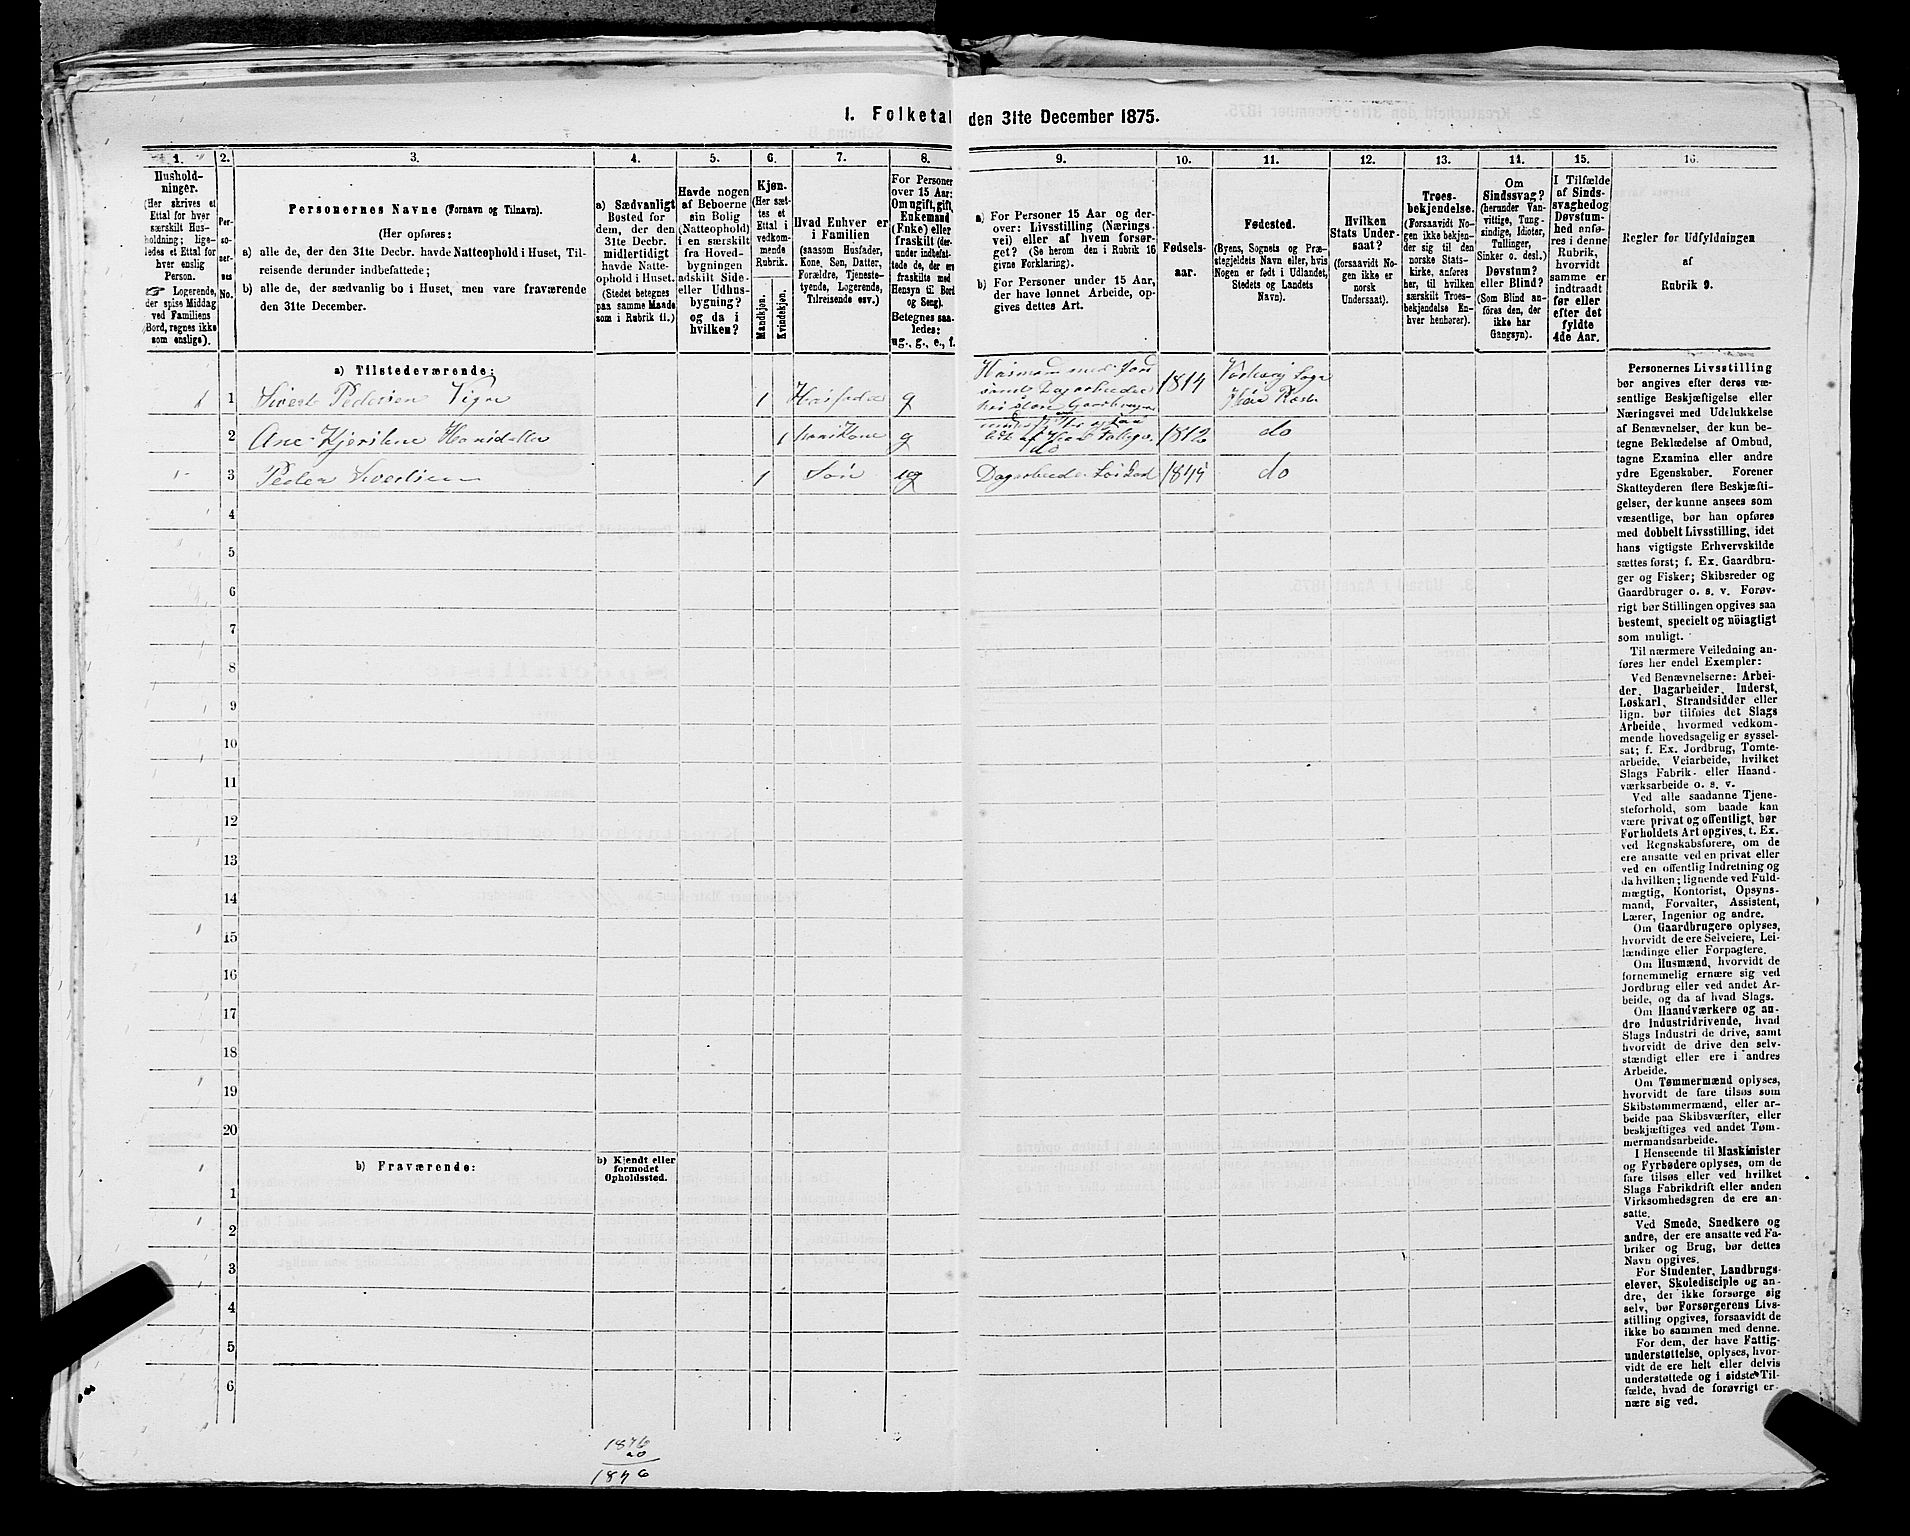 1. Folketal den 31te December 1875.
1. 2. 3. 4. 5. 6. 7. 8. 9. 10. 11. 12. 13. 14. 15. 16.
Husholdninger.
(Her skrives et
Ettal for hver
særskilt Husholdning;
ligeledes
et Ettal for
hver enslig
Person.
☞ Logerende,
der spise Middag
ved Familiens
Bord, regnes ikke
som enslige).
Personernes No.
Personernes Navne (Fornavn og Tilnavn).
(Her opføres:
a) alle de, der den 31te Decbr. havde Natteophold i Huset, Tilreisende
derunder indbefattede;
b) alle de, der sædvanlig bo i Huset, men vare fraværende
den 31te December.
a) Sædvanligt
Bosted for
dem, der den
31te Decbr.
midlertidigt
havde Natteophold
i Huset.
(Stedet betegnes
paa samme Maade
som i Rubrik 11.)
Havde nogen
af Beboerne
sin Bolig
(Natteophold)
i en særskilt
fra Hovedbygningen
adskilt Side-
eller Udhusbygning?
og da i
hvilken?
Kjøn.
(Her sættes
et
Ettal i
vedkommende
Rubrik.
Mandkjøn.
Kvindekjøn.
Hvad Enhver er
i Familien
(saasom Husfader,
Kone, Søn, Datter,
Forældre, Tjenestetyende,
Logerende,
Tilreisende osv.)
For Personer
over 15 Aar:
Om ugift, gift,
Enkemand
(Enke) eller
fraskilt (derunder
indbefattede
de, der ere
fraskilte med
Hensyn til Bord
og Seng).
Betegnes saaledes:
ug., g., e., f.
a) For Personer 15 Aar og derover:
Livsstilling (Næringsvei)
eller af hvem forsørget?
(Se herom den i Rubrik 16
givne Forklaring).
b) For Personer under 15 Aar,
der have lønnet Arbeide, opgives
dettes Art.
Fødselsaar.
Fødested.
(Byens, Sognets og Præstegjeldets
Navn eller, hvis
Nogen er født i Udlandet,
Stedets og Landets
Navn).
Hvilken
Stats Undersaat?
(forsaavidt Nogen
ikke er
norsk
Undersaat).
Troesbekjendelse.
(Forsaavidt Nogen
ikke bekjender
sig til den
norske Statskirke,
anføres
her, til hvilken
særskilt Troesbekjendelse
Enhver
henhører).
Om
Sindssvag?
(herunder Vanvittige,
Tungsindige,
Idioter,
Tullinger,
Sinker o. desl.)
Døvstum?
eller Blind?
(Som Blind anføres
den, der
ikke har
Gangsyn).
I Tilfælde
af Sindssvaghed
og
Døvstumhed
anføres
i denne
Rubrik,
hvorvidt
samme er
indtraadt
før eller
efter det
fyldte
4de Aar.
Regler for Udfyldningen
af
Rubrik 9.
a) Tilstedeværende:
1 1 Sivert Pedersen Vigen 1 Husfader g Husmand med Jord 1814
2 Ane Kjerstine Hansdatter 1 hans Kone g 1812 do
1 3 Peder Sivertsen 1 Søn ug Dagarbeider 1844 do
4
5
6
7
8
9
10
11
12
13
14
15
16
17
18
19
20
b) Fraværende:
b) Kjendt eller
formodet
Opholdssted.
1
2
3
4
5
6
1876
1876
Personernes Livsstilling
bør angives efter deres væsentlige
Beskjæftigelse eller
Næringsvei med Udelukkelse
af Benævnelser, der kun betegne
Beklædelse af Ombud,
tagne Examina eller andre
ydre Egenskaber. Forener
Skatteyderen flere Beskjæftigelser,
der kunne ansees som
væsentlige, bør han opføres
med dobbelt Livsstilling, idet
hans vigtigste Erhvervskilde
sættes først; f. Ex. Gaardbruger
og Fisker; Skibsreder og
Gaardbruger o. s. v. Forøvrigt
bør Stillingen opgives saa
bestemt, specielt og nöiagtigt
som muligt.
Til nærmere Veiledning anføres
her endel Exempler:
Ved Benævnelserne: Arbeider,
Dagarbeider, Inderst,
Løskarl, Strandsidder eller
lign. bør tilføies det Slags
Arbeide, hvormed vedkommende
hovedsagelig er sysselsat;
f. Ex. Jordbrug, Tomtearbeide,
Veiarbeide, hvilket
Slags Fabrik- eller Haandværksarbeide
o. s. v.
Ved alle saadanne Tjenesteforhold,
som baade kan
være privat og offentligt, bør
Forholdets Art opgives, t. Ex.
ved Regnskabsførere, om de
ere ansatte ved en privat eller
ved en offentlig Indretning og
da hvilken; lignende ved Fuldmægtig,
Kontorist, Opsynsmand,
Forvalter, Assistent,
Lærer, Ingeniør og andre.
Om Gaardbrugere oplyses,
hvorvidt de ere Selveiere, Leilændinge
eller Forpagtere.
Om Husmænd, hvorvidt de
fornemmelig ernære sig ved
Jordbrug eller ved andet Arbeide,
og da af hvad Slags.
Om Haandværkere og andre
Industridrivende, hvad
Slags Industri de drive, samt
hvorvidt de drive den selvstændigt
eller ere i andres
Arbeide.
Om Tømmermænd oplyses,
hvorvidt de fare tilsøs som
Skibstømmermænd, eller arbeide
paa Skibsværfter, eller
beskjæftiges ved andet Tømmermandsarbeide.
I Henseende til Maskinister
og Fyrbødere oplyses, om de
fare tilsøs eller ved hvilket
Slags Fabrikdrift eller anden
Virksomhedsgren de ere ansatte.
Ved Smede, Snedkere og
andre, der ere ansatte ved Fabriker
og Brug, bør dettes
Navn opgives.
For Studenter, Landbrugselever,
Skoledisciple og andre,
der ikke forsørge sig
selv, bør Forsørgerens Livsstilling
opgives, forsaavidt de
ikke bo sammen med denne.
For dem, der have Fattigunderstøttelse,
oplyses, hvorvidt
de ere helt eller delvis
understøttede og i sidste Tilfælde,
hvad de forøvrigt ernære
sig ved.